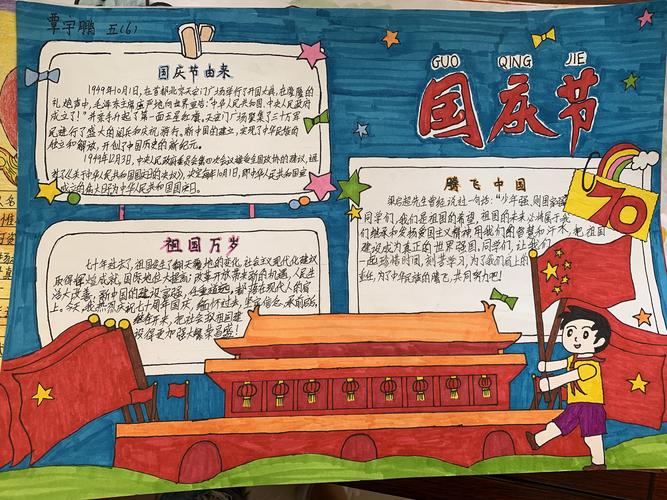 覃宇鹏 五(6)
GUO QING JIE
国庆节
国庆节由来
1949年10月1日,在首都北京天安门广场举行了开国大典,在隆隆的
礼炮声中,毛泽东主席庄严地向世界宣告:"中华人民共和国,中央人民政府
成立了!"并亲手升起了第一面五星红旗,天安门广场聚集了三十万军
民进行了盛大的阅兵和庆祝游行。新中国的建立,实现了中华民族的
独立和解放,开创了中国历史的新纪元。
1949年12月3日,中央人民政府委员会第四次会议接受全国政协的建议,通
过了《关于中华人民共和国国庆日的决议》,决定每年10月1日,即中华人民共和国宣
成立的 日为中华人民共和国国庆日。
祖国万岁
七十年过去了,祖国发生了翻天覆地的变化,社会主义现代化建设
取得辉煌成就,国际地位大提高;改革开放带来新的机遇,人民生
活大改善,新中国的建设富强,任重道远,都落在现代人的肩
上。今天,我们庆祝七十周年国庆,缅怀过去,坚定信念,承前启后,
继往开来,把社会主义祖国建
设得更加强大繁荣昌盛!
腾飞中国
梁启超先生曾经说过一句话:"少年强,则国家强
同学们,我们是祖国的希望,祖国的未来必将属于我
们继承和发扬爱国主义精神用我们的智慧和汗水,把祖国
建设成为真正的世界强国,同学们,让我们
一起珍惜时间,刻苦学习,为了我们肩上的
重任,为了中华民族的腾飞,共同努力吧!
70